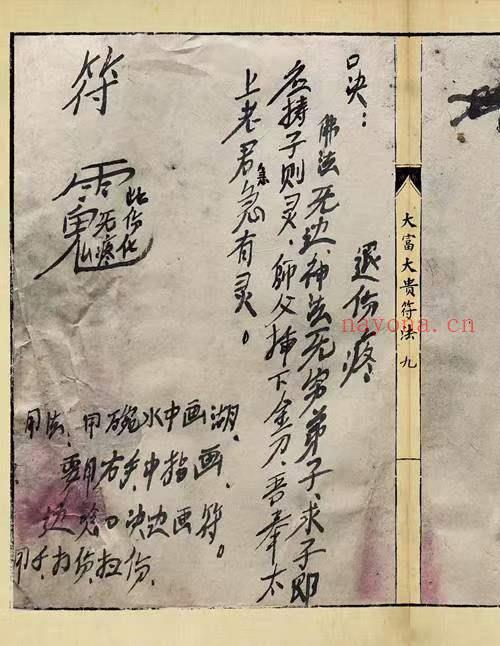 大富大贵符法 九
退伤疼
口决：
佛法无边、神法无穷弟子、求子即
应持子则灵，师父插下金刀、吾奉太
上老君急急有灵。
符
此伤化
无疼
用法：用碗水中画湖，
要用右手中指画，
边念口决边画符。
用于打伤，扭伤，
nayona.cn